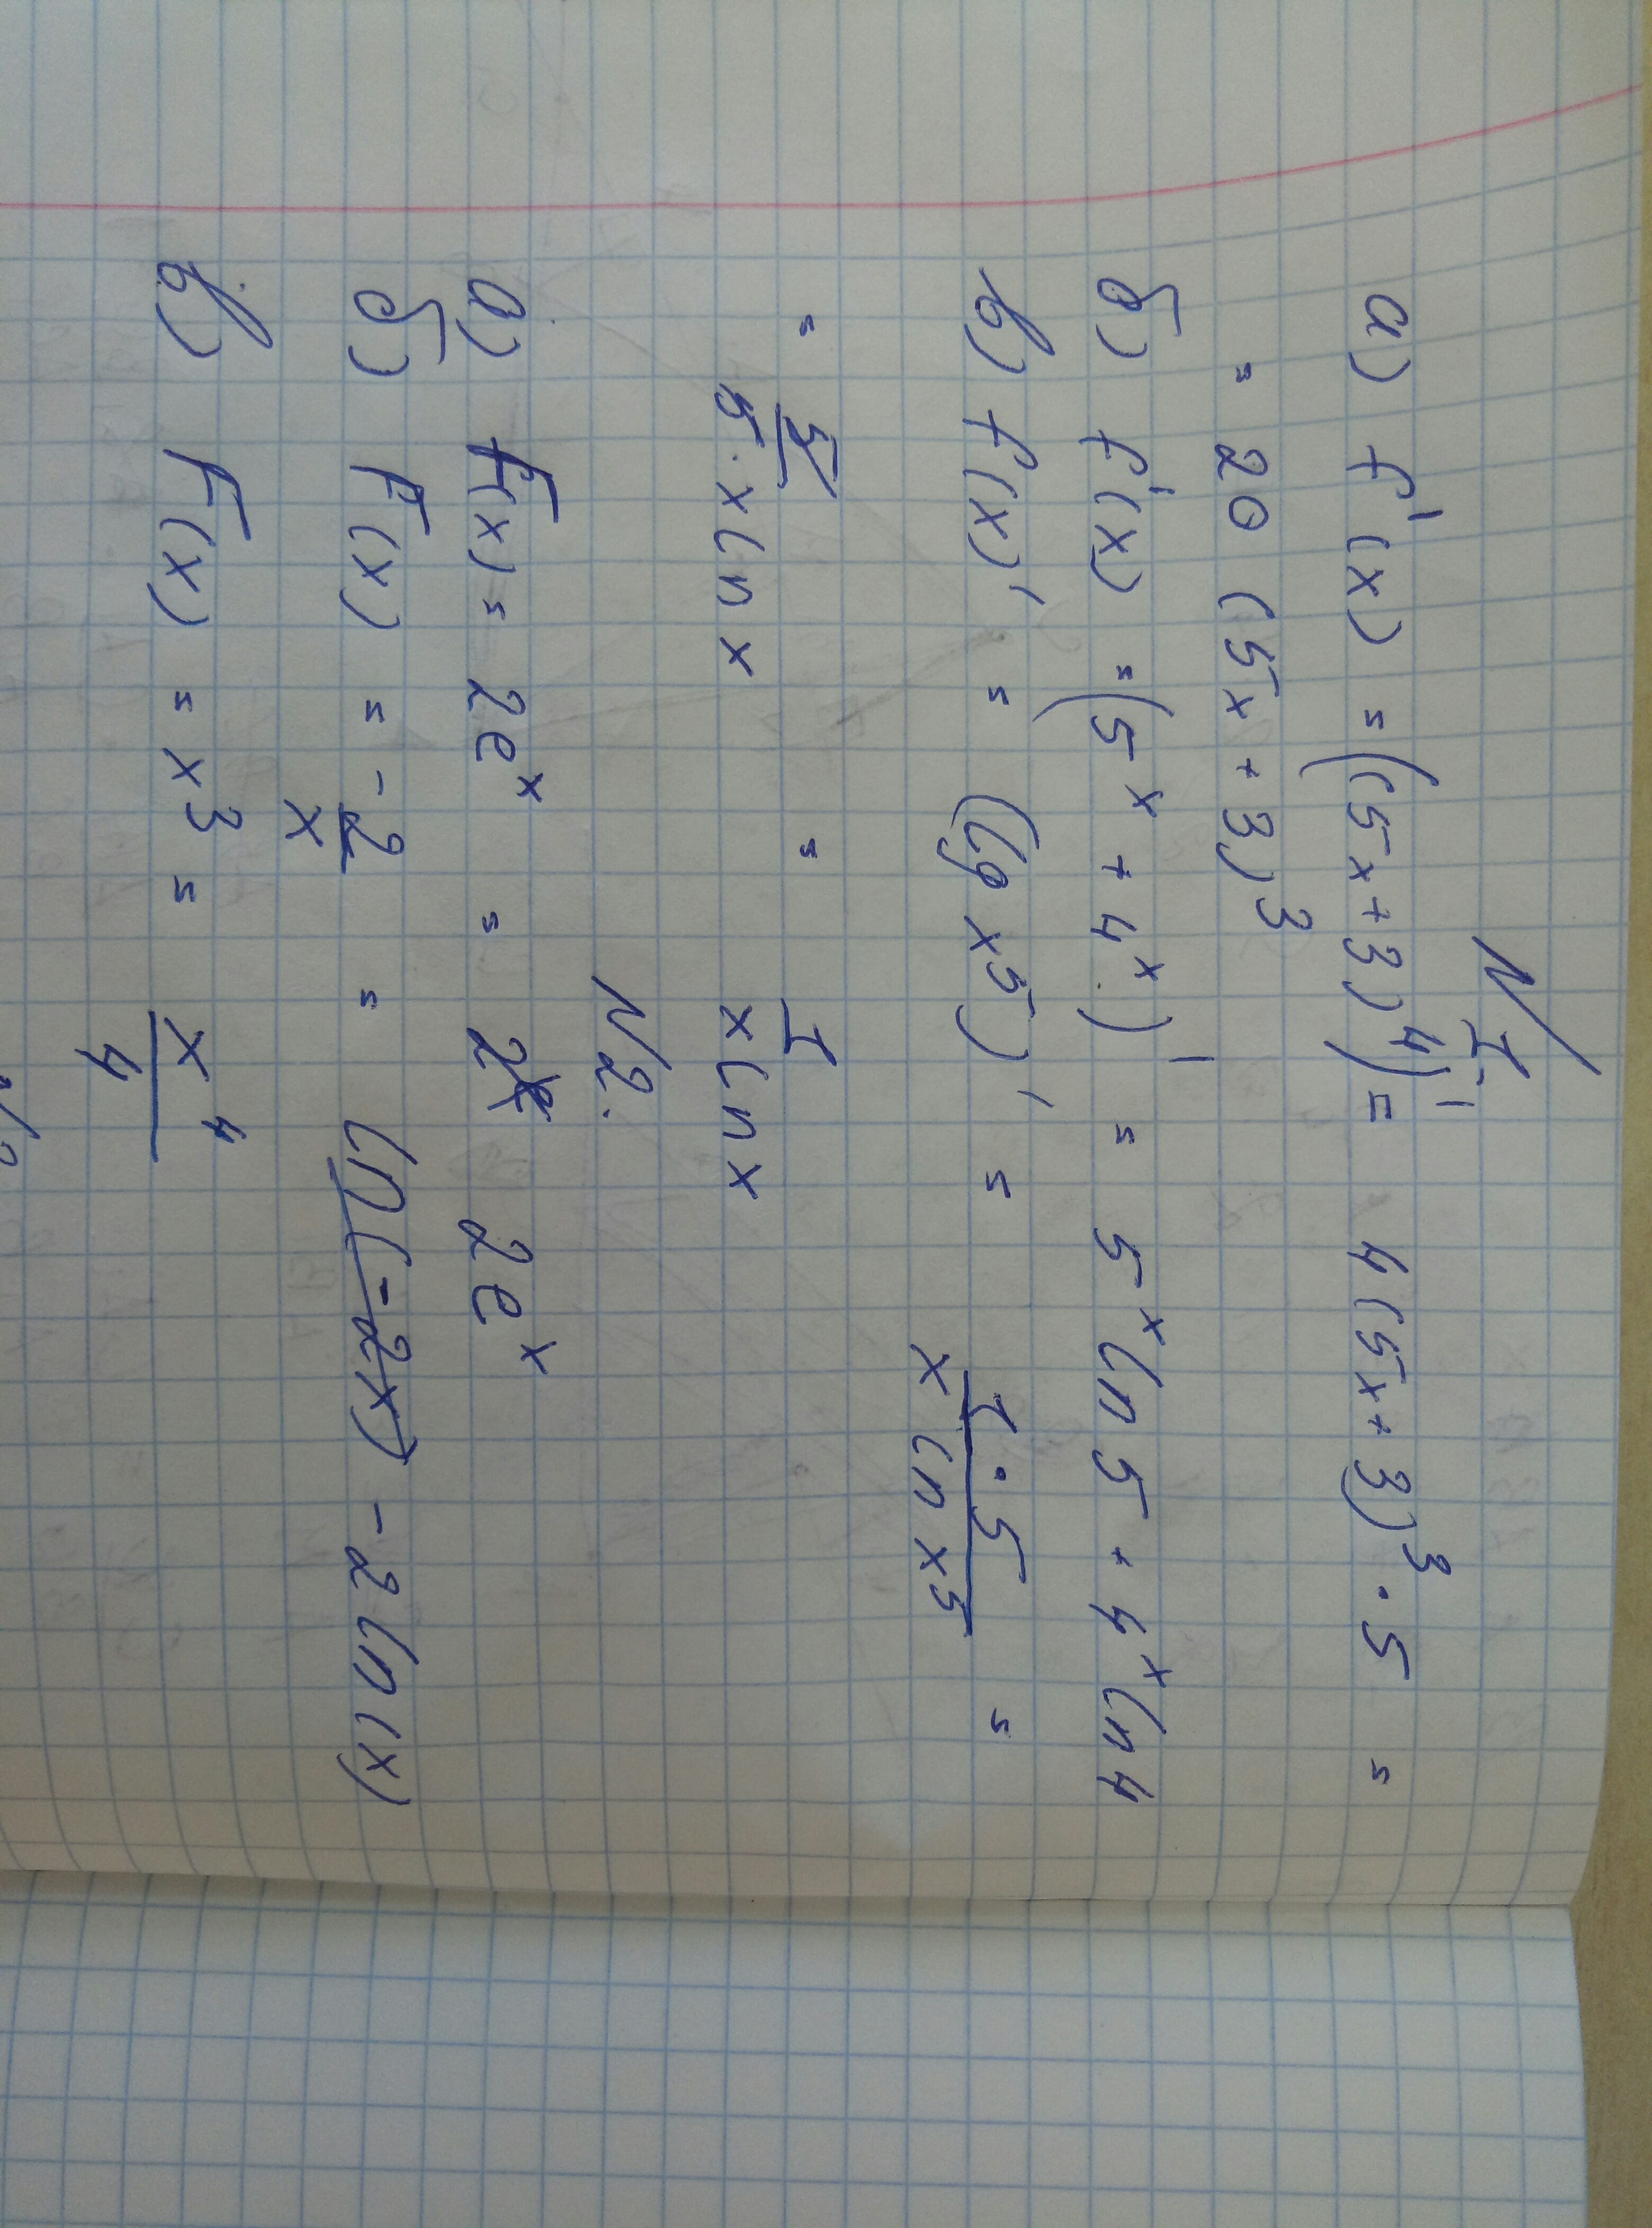 N1.
а) f'(x) = ((5x+3)⁴)' = 4(5x+3)³ · 5 =
= 20 (5x+3)³
б) f'(x) = (5ˣ + 4ˣ)' = 5ˣ ln 5 + 4ˣ ln 4
в) f(x)' = (lg x⁵)' = 1·5 / x ln x⁵ =
= 5 / 5·x ln x = 1 / x ln x
N2.
а) F(x) = 2eˣ = 2eˣ
б) F(x) = -2/x = ln(-2x) -2 ln(x)
в) F(x) = x³ = x⁴/4